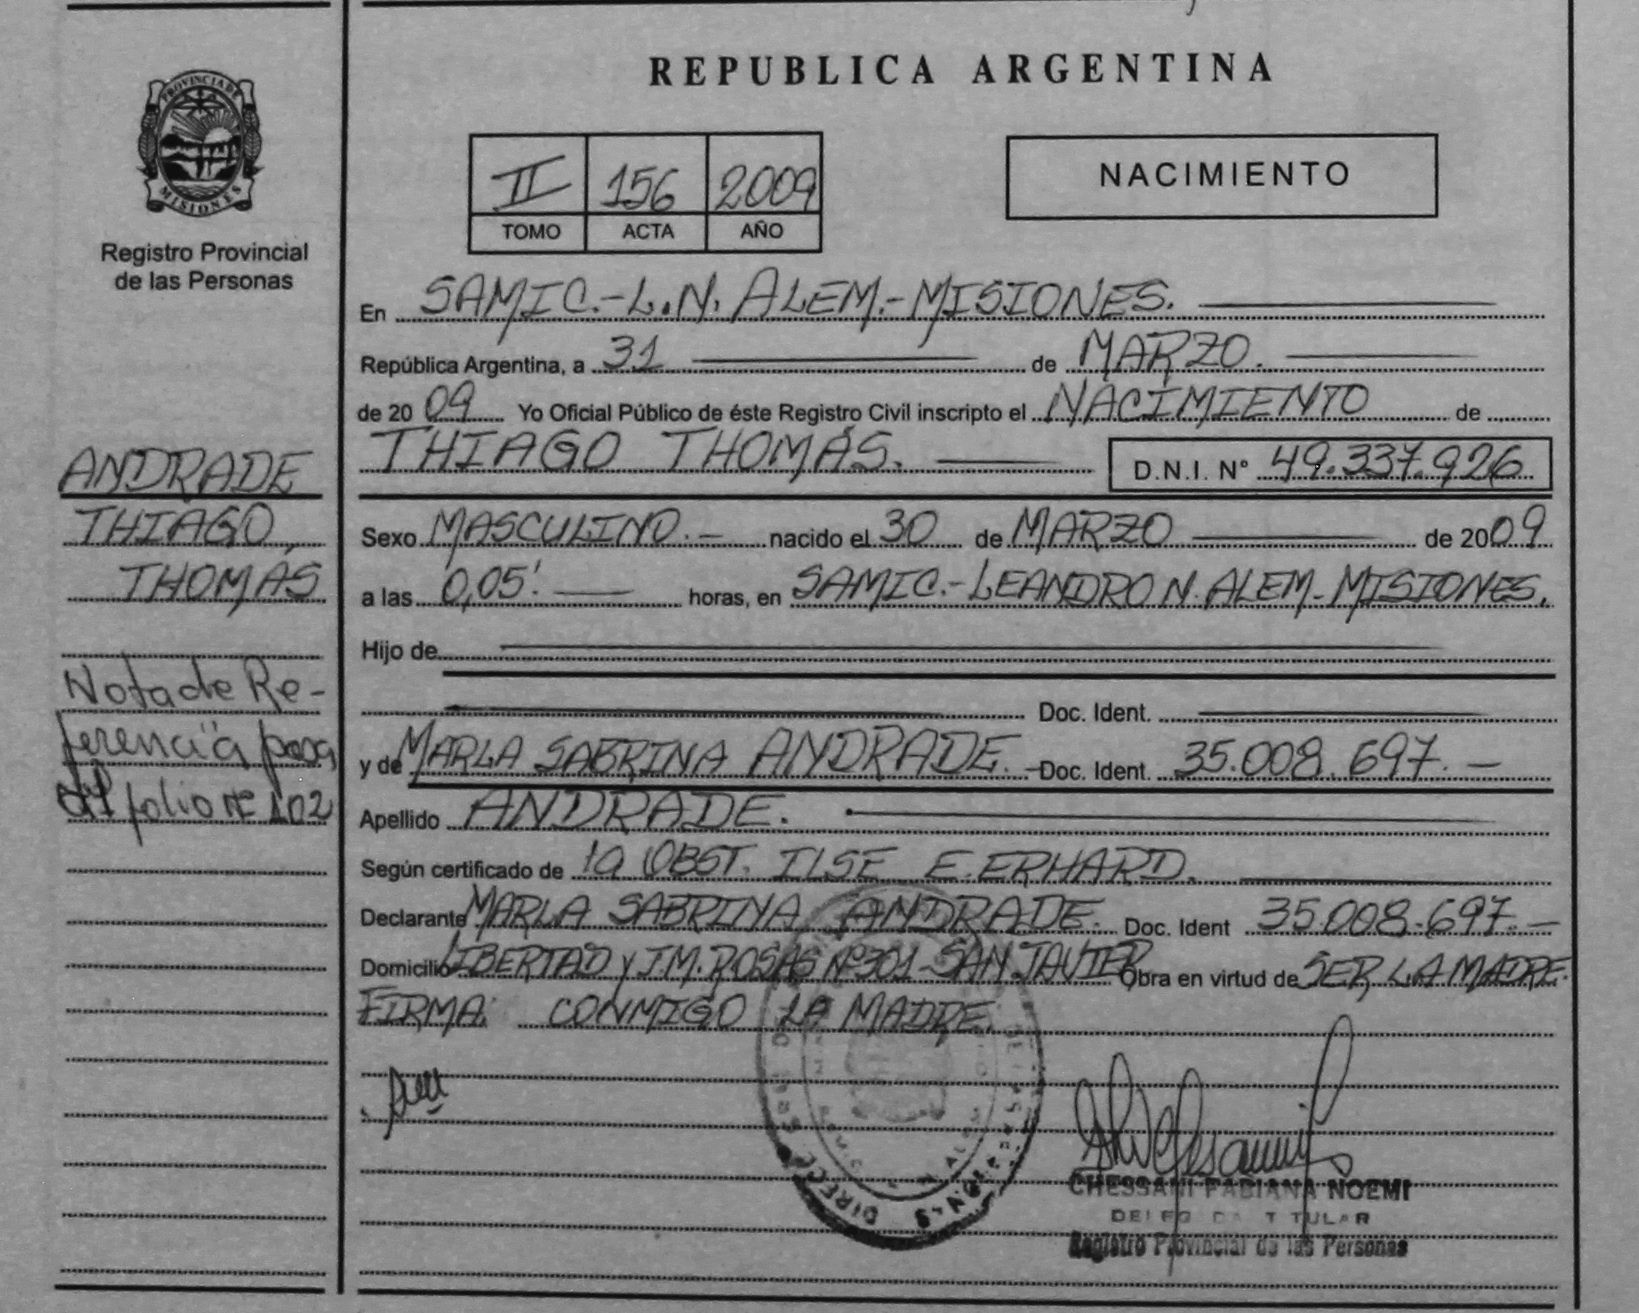 REPUBLICA ARGENTINA
PROVINCIA DE
MISIONES
Registro Provincial
de las Personas
II 156 2009
TOMO ACTA AÑO
NACIMIENTO
En SAMIC.-L.N. ALEM.-MISIONES.
República Argentina, a 31 de MARZO.
de 2009 Yo Oficial Público de éste Registro Civil inscripto el NACIMIENTO de
THIAGO THOMAS. D.N.I. Nº 49.337.926
Sexo MASCULINO.- nacido el 30 de MARZO de 2009
a las 0,05' horas, en SAMIC.-LEANDRO N. ALEM-MISIONES.
Hijo de
Doc. Ident.
y de MARLA SABRINA ANDRADE. - Doc. Ident. 35.008.697.-
Apellido ANDRADE.
Según certificado de la OBST. ILSE E. ERHARD.
Declarante MARLA SABRINA ANDRADE. Doc. Ident 35.008.697.-
Domicilio LIBERTAD y J.M. ROSAS Nº301-SAN JAVIER Obra en virtud de SER LA MADRE.
FIRMA: CONMIGO LA MADRE.
CHESSANI FABIANA NOEMI
DELEGADA TITULAR
Registro Provincial de las Personas
ANDRADE
THIAGO,
THOMAS
Nota de Re-
ferencia pasa
al folio Nº 102